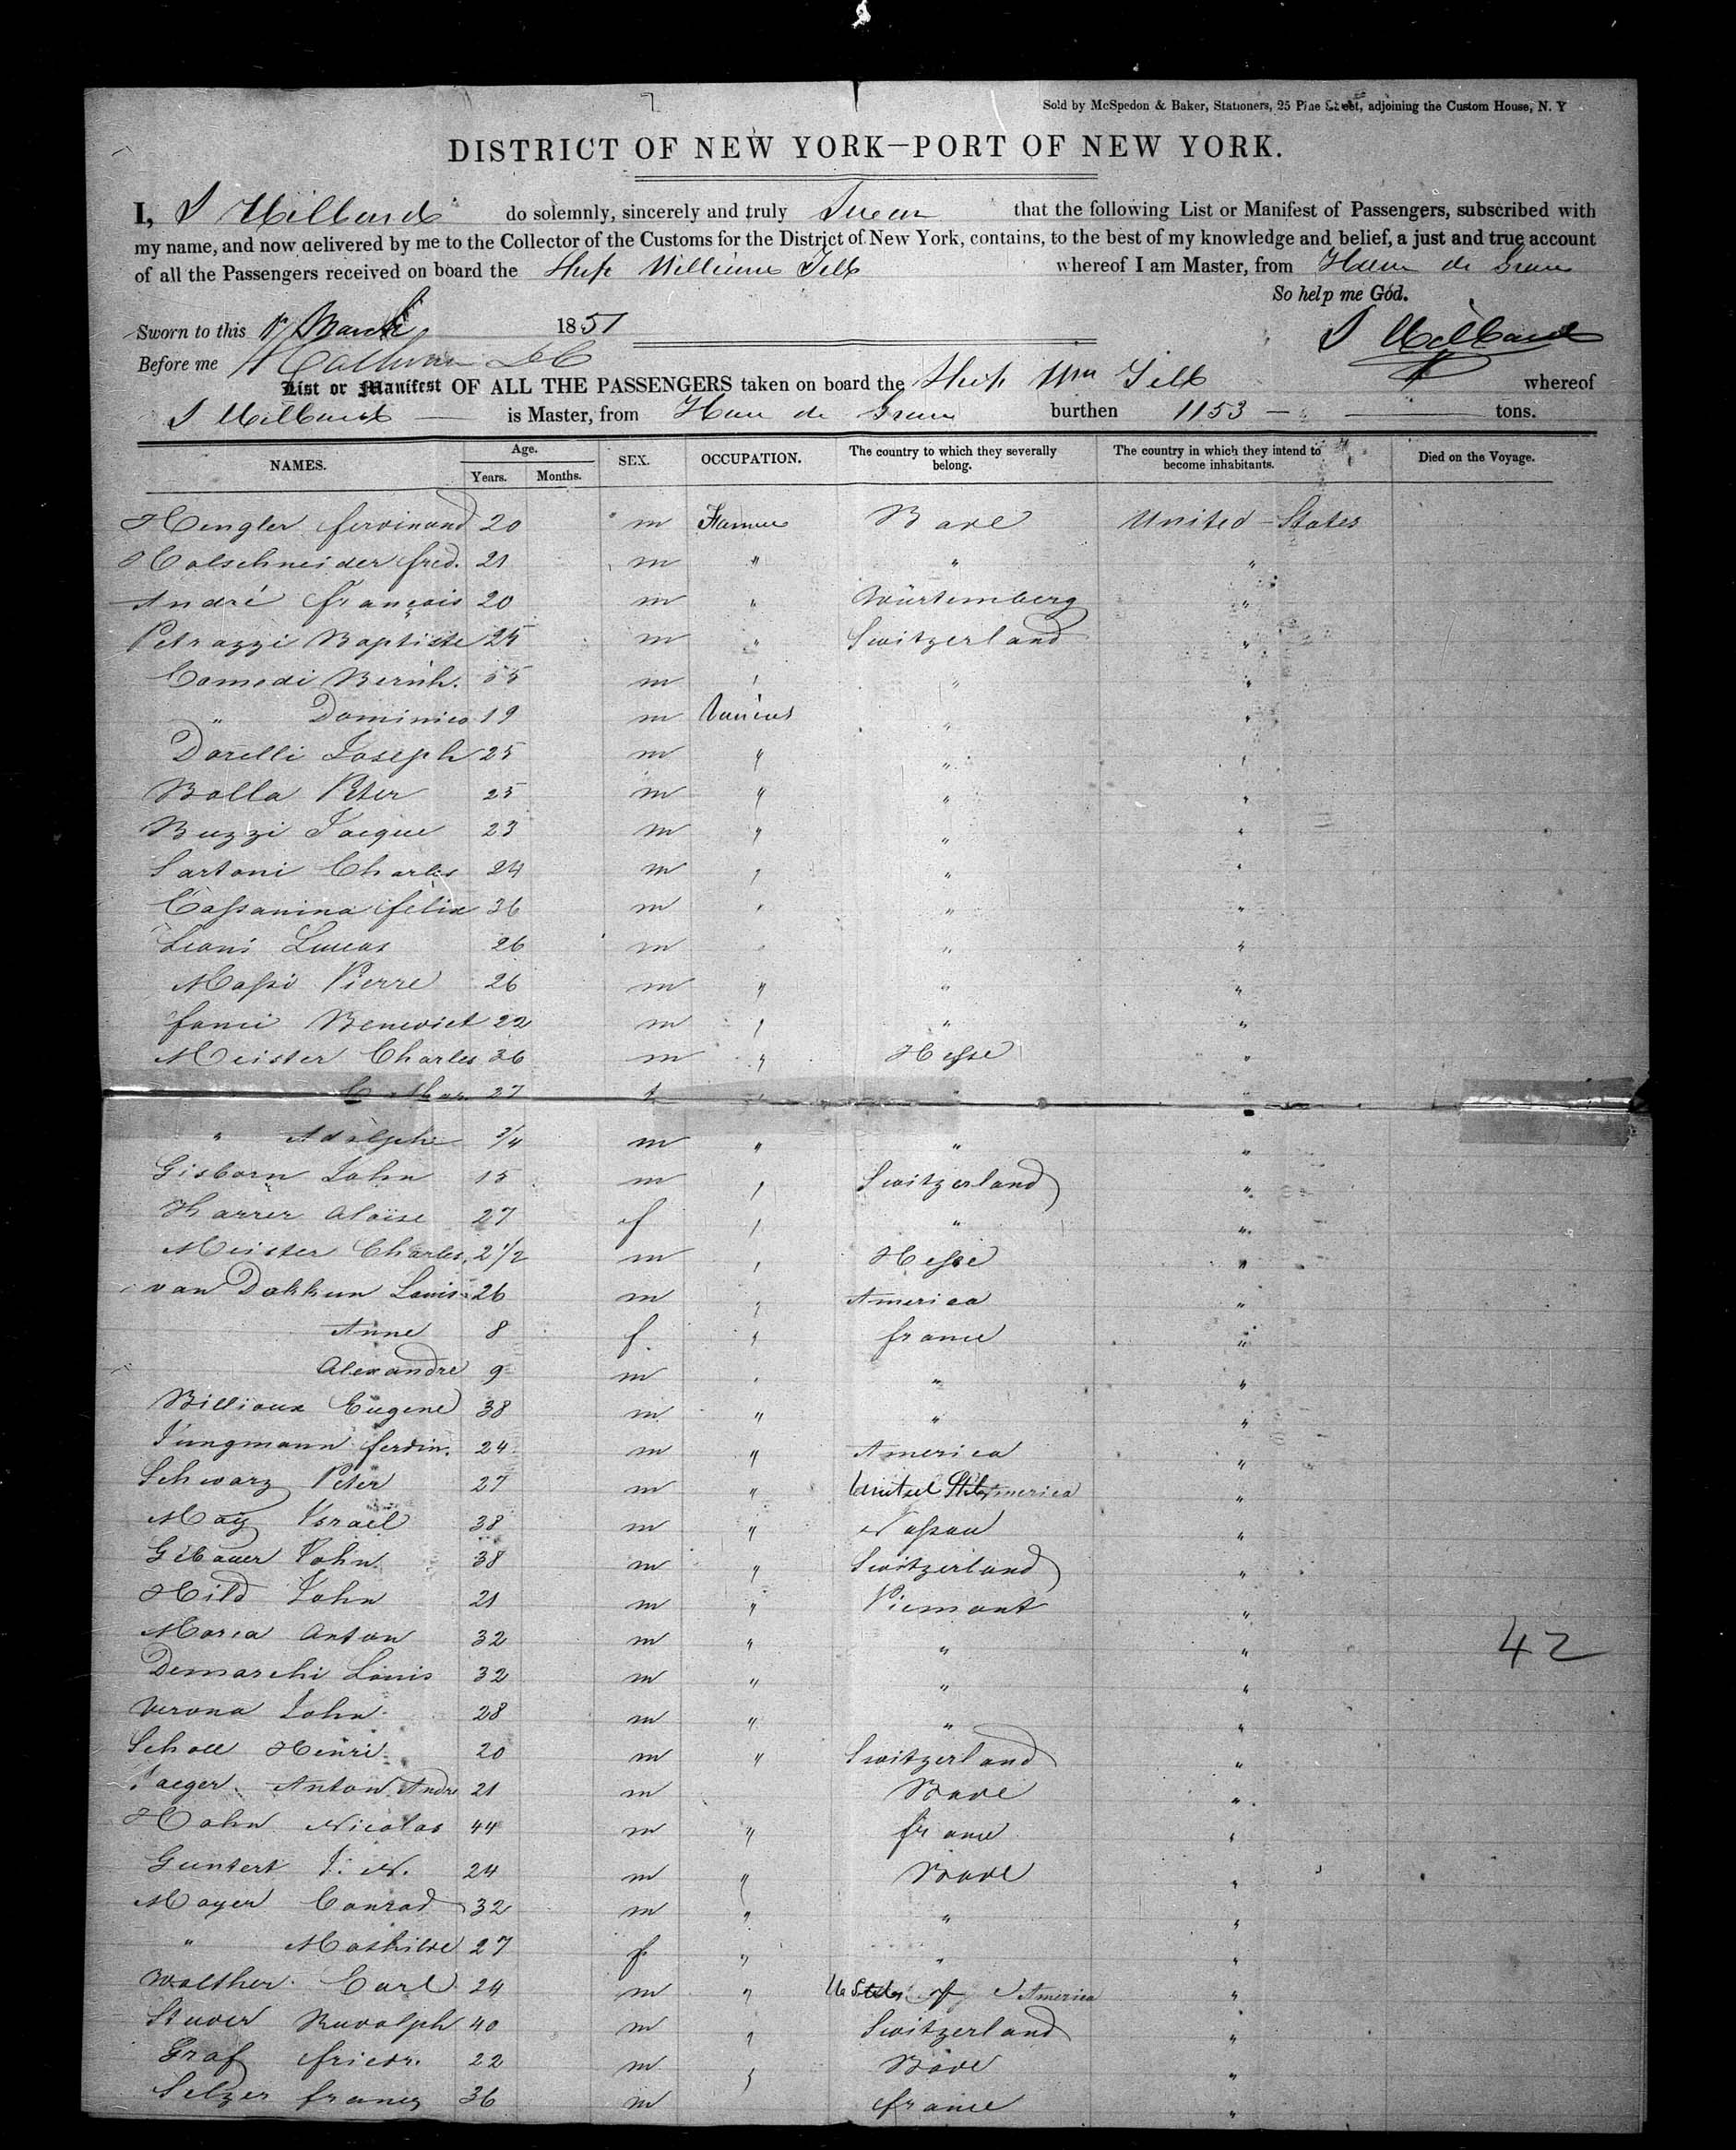 Sold by McSpedon & Baker, Stationers, 25 Pine Street, adjoining the Custom House, N. Y
DISTRICT OF NEW YORK—PORT OF NEW YORK.
I, J Willard do solemnly, sincerely and truly Swear that the following List or Manifest of Passengers, subscribed with
my name, and now delivered by me to the Collector of the Customs for the District of New York, contains, to the best of my knowledge and belief, a just and true account
of all the Passengers received on board the Ship William Tell whereof I am Master, from Havre de Grace
So help me God.
Sworn to this March 1851
J Willard
Before me
List or Manifest OF ALL THE PASSENGERS taken on board the Ship Wm Tell whereof
J Willard is Master, from Havre de Grace burthen 1153 tons.
NAMES. Age. Years. Months. SEX. OCCUPATION. The country to which they severally belong. The country in which they intend to become inhabitants. Died on the Voyage.
Hengler ferdinand 20 m Farmer Bade United States
Holschneider fred. 21 m " " "
André françois 20 m " Würtemberg "
Petrazzi Baptiste 25 m " Switzerland "
Comodi Bernh. 55 m " " "
" Dominico 19 m Various " "
Dorelli Joseph 25 m " " "
Bolla Peter 25 m " " "
Buzzi Jacque 23 m " " "
Sartoni Charles 24 m " " "
Cassanina felix 36 m " " "
Leoni Lucas 26 m " " "
Massi Pierre 26 m " " "
Benedict 22 m " " "
Meister Charles 36 m " Hesse "
27 f " " "
" Adolphe 3/4 m " " "
Gisborn John 15 m " Switzerland "
Harrer Aloïse 27 f " " "
Meister Charles 2 1/2 m " Hesse "
van Dokkun Louis 26 m " America "
Anne 8 f " france "
Alexandre 9 m " " "
Billioux Eugene 38 m " " "
Jungmann ferdin. 24 m " America "
Schwarz Peter 27 m " United America "
May Israel 38 m " Nassau "
Gebauer John 38 m " Switzerland "
Hild John 21 m " Piemont "
Maria Anton 32 m " " "
42
Demarchi Louis 32 m " " "
Verona John 28 m " " "
Scholl Henri 20 m " Switzerland "
Jaeger Anton Andre 21 m Bade "
Hahn Nicolas 44 m " france "
Guntert J. N. 24 m " Bade "
Mayer Conrad 32 m " " "
" Mathilde 27 f " " "
Walther Carl 24 m " America "
Studer Rudolph 40 m " Switzerland "
Graf friedr. 22 m " Bade "
Selzer franz 36 m france "